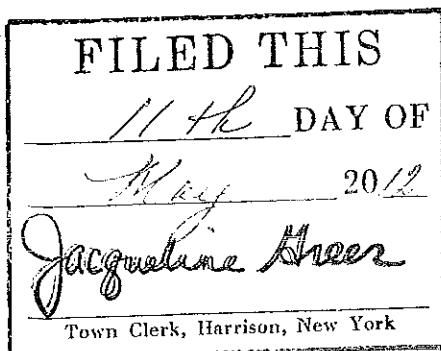 FILED THIS
11th DAY OF
May 2012
Jacqueline Greer
Town Clerk, Harrison, New York